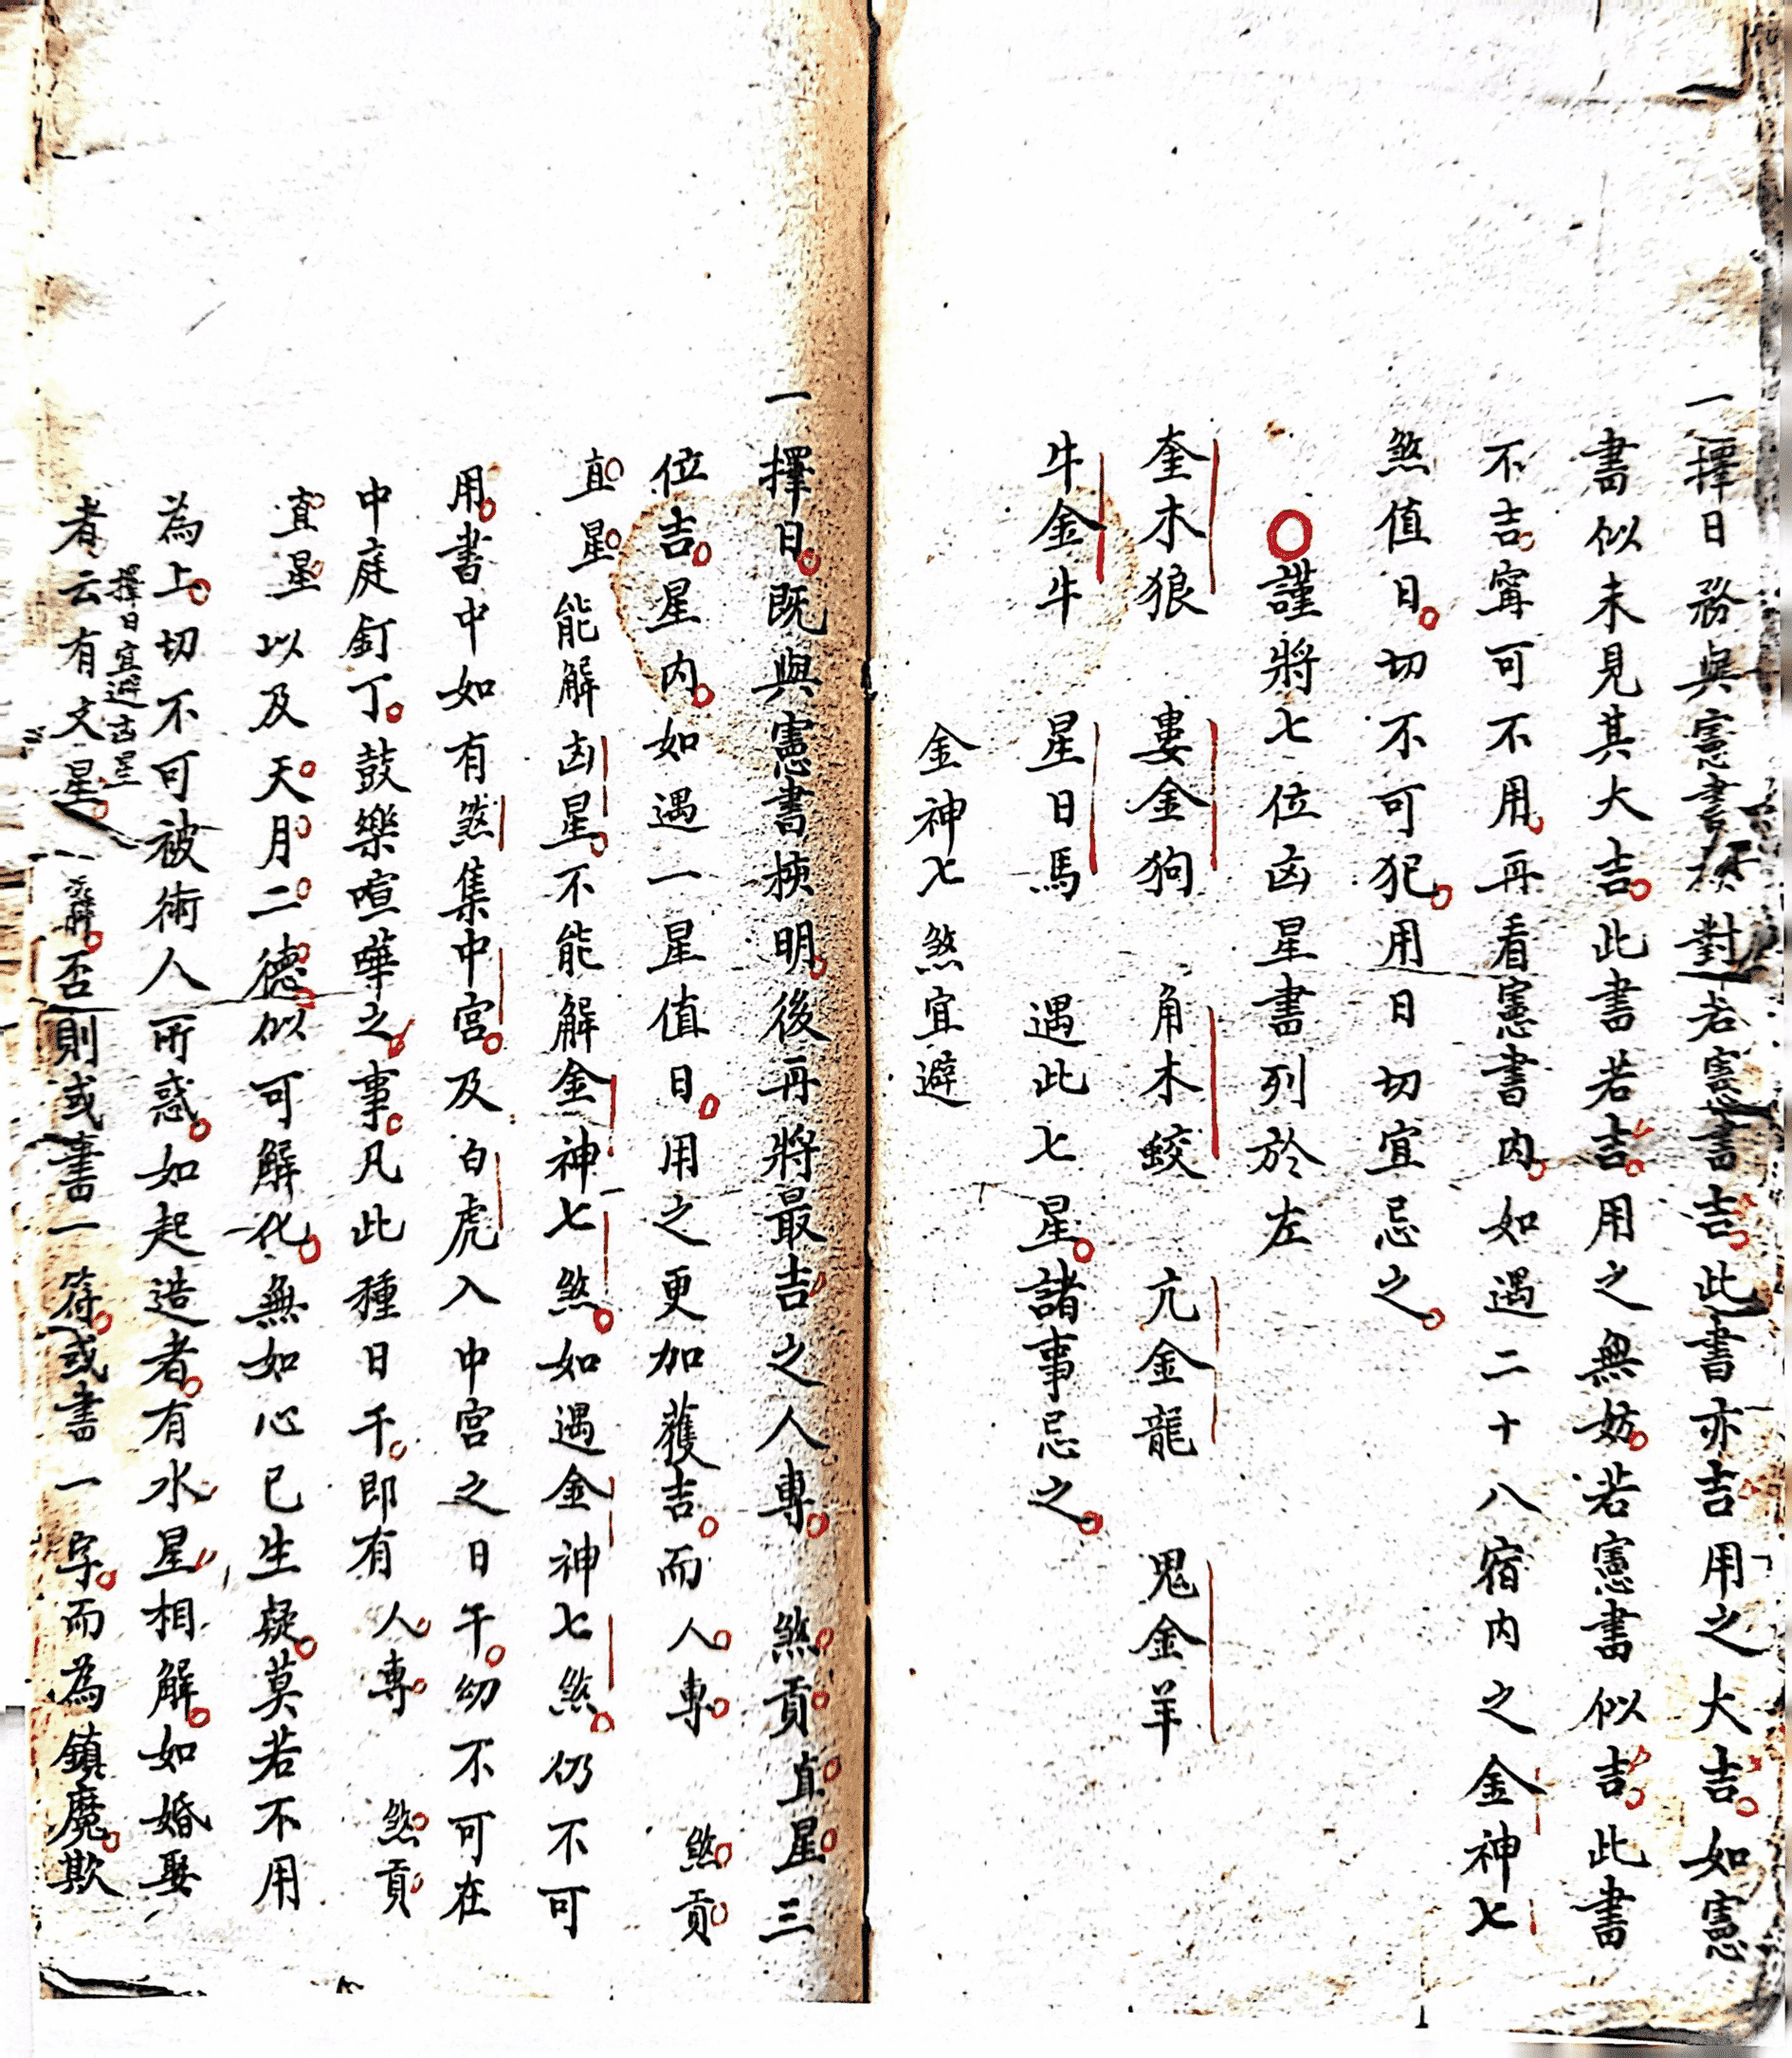 一擇日務與憲書揀對若憲書吉此書亦吉用之大吉如憲
書似未見其大吉此書若吉用之無妨若憲書似吉此書
不吉寧可不用再看憲書內如遇二十八宿內之金神七
煞值日切不可犯用日切宜忌之
謹將七位凶星書列於左
奎木狼 婁金狗 角木蛟 亢金龍 鬼金羊
牛金牛 星日馬 遇此七星諸事忌之
金神七煞宜避
一擇日既與憲書揀明後再將最吉之人專 煞貢直星三
位吉星內如遇一星值日用之更加獲吉而人專 煞貢
直星能解凶星不能解金神七煞如遇金神七煞仍不可
用書中如有煞集中宮及白虎入中宮之日干幼不可在
中庭釘丁鼓樂喧嘩之事凡此種日干即有人專 煞貢
直星以及天月二德似可解化無如心已生疑莫若不用
為上切不可被術人所惑如起造者有水星相解如婚娶
擇日宜避古星
者云有文星解否則或書一符或書一字而為鎮魔欺